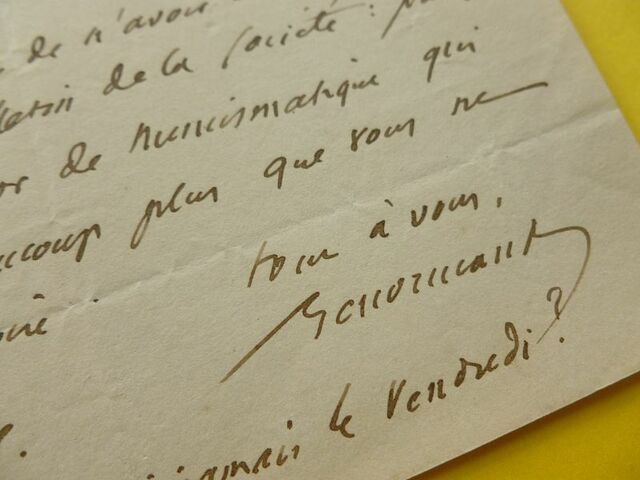 de n'avoir
letin de la Société :
de numismatique qui
aucoup plus que vous ne
tout à vous,
Lenormant
jamais le Vendredi ?